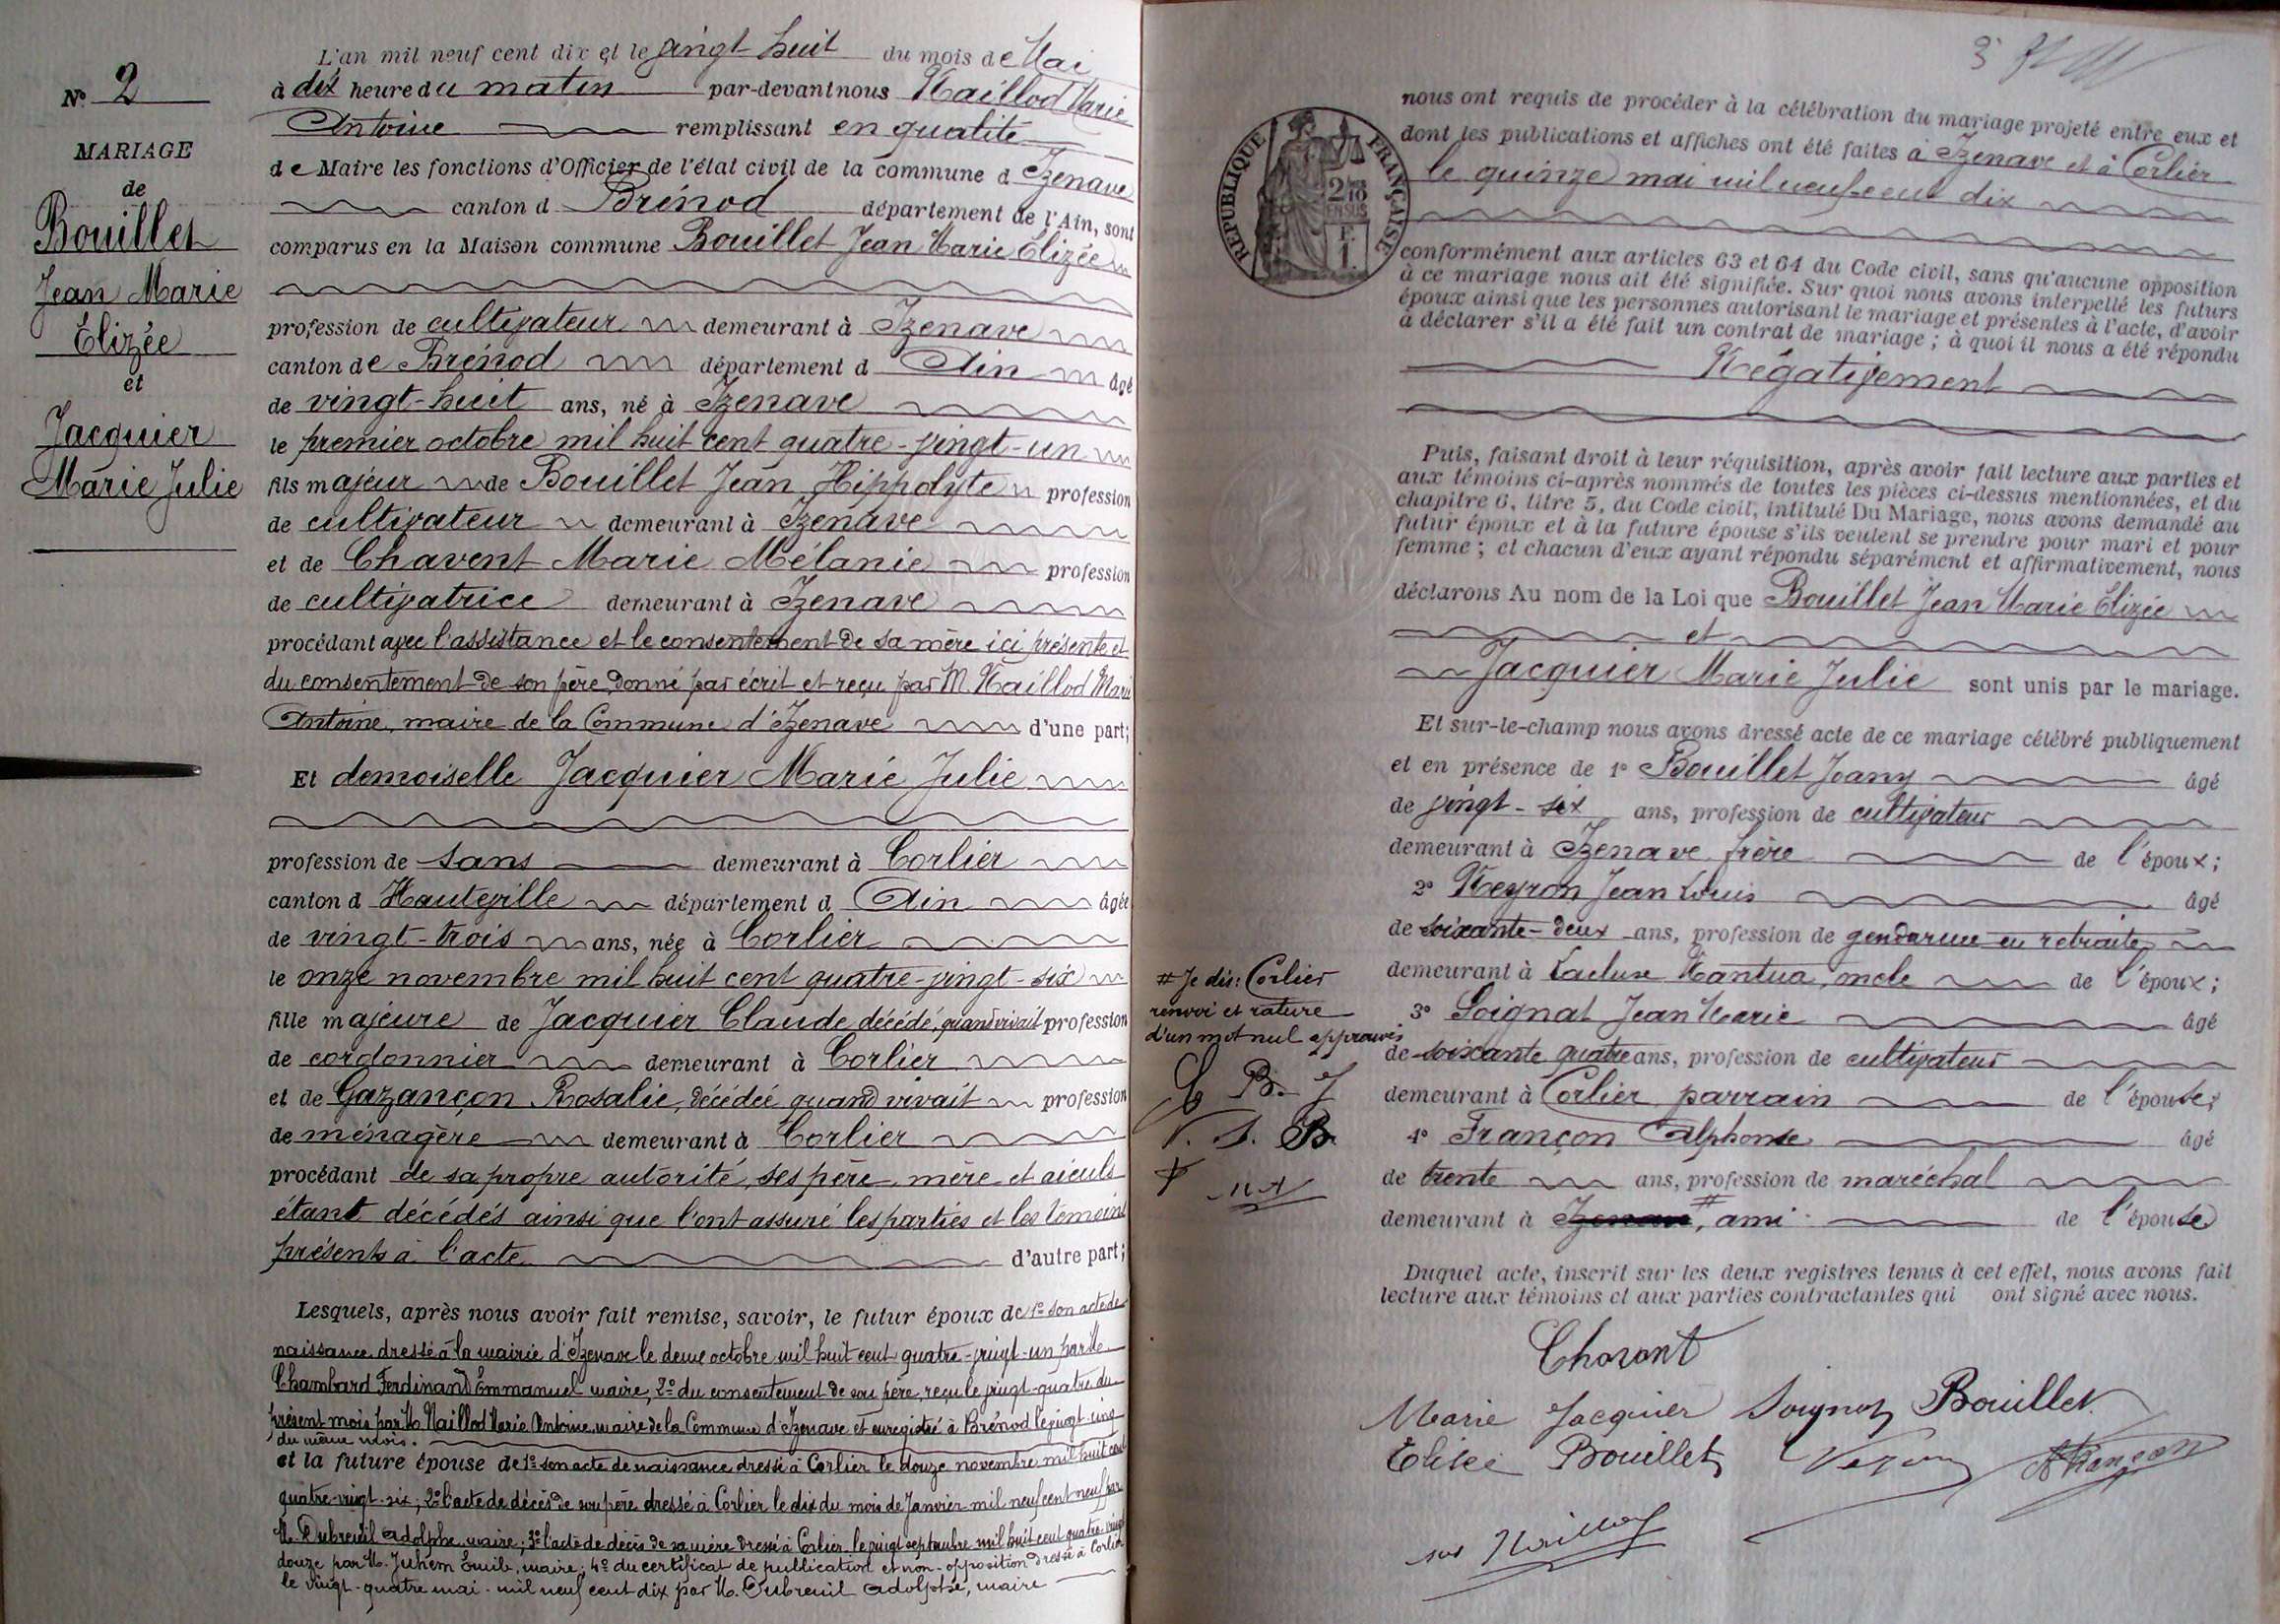 N° 2
MARIAGE
de
Bouillet
Jean Marie
Élizée
et
Jacquier
Marie Julie
L'an mil neuf cent dix et le vingt huit du mois de Mai
à dix heure du matin par-devant nous Naillod Marie
Antoine remplissant en qualité
de Maire les fonctions d'Officier de l'état civil de la commune d Izenave
canton d Brénod département de l'Ain, sont
comparus en la Maison commune Bouillet Jean Marie Élizée
profession de cultivateur demeurant à Izenave
canton de Brénod département d Ain âgé
de vingt-huit ans, né à Izenave
le premier octobre mil huit cent quatre-vingt-un
fils majeur de Bouillet Jean Hippolyte profession
de cultivateur demeurant à Izenave
et de Chavent Marie Mélanie profession
de cultivatrice demeurant à Izenave
procédant avec l'assistance et le consentement de sa mère ici présente et
du consentement de son père, donné par écrit et reçu par M. Naillod Marie
Antoine, maire de la Commune d'Izenave d'une part;
Et demoiselle Jacquier Marie Julie
profession de sans demeurant à Corlier
canton d Hauteville département d Ain âgée
de vingt-trois ans, née à Corlier
le onze novembre mil huit cent quatre-vingt-six
fille majeure de Jacquier Claude décédé, quand vivait profession
de cordonnier demeurant à Corlier
et de Gazançon Rosalie, décédée quand vivait profession
de ménagère demeurant à Corlier
procédant de sa propre autorité, ses père, mère et aïeuls
étant décédés ainsi que l'ont assuré les parties et les témoins
présents à l'acte d'autre part;
Lesquels, après nous avoir fait remise, savoir, le futur époux de 1° son acte de
naissance dressé à la mairie d'Izenave le deux octobre mil huit cent quatre-vingt-un par M.
Chambard Ferdinand Emmanuel maire, 2° du consentement de son père, reçu le vingt-quatre du
présent mois par M. Naillod Marie Antoine, maire de la Commune d'Izenave et enregistré à Brénod le vingt-cinq
du même mois.
et la future épouse de 1° son acte de naissance dressé à Corlier le douze novembre mil huit cent
quatre-vingt-six, 2° l'acte de décès de son père dressé à Corlier le dix du mois de Janvier mil neuf cent neuf par
M. Dubreuil Adolphe, maire; 3° l'acte de décès de sa mère dressé à Corlier le vingt septembre mil huit cent quatre-vingt
douze par M. Juhem Émile, maire; 4° du certificat de publication et non-opposition dressé à Corlier
le vingt-quatre mai mil neuf cent dix par M. Dubreuil Adolphe, maire
3
REPUBLIQUE FRANÇAISE
2/10
EN SUS
F.
1.
nous ont requis de procéder à la célébration du mariage projeté entre eux et
dont les publications et affiches ont été faites à Izenave et à Corlier
le quinze mai mil neuf cent dix
conformément aux articles 63 et 64 du Code civil, sans qu'aucune opposition
à ce mariage nous ait été signifiée. Sur quoi nous avons interpellé les futurs
époux ainsi que les personnes autorisant le mariage et présentes à l'acte, d'avoir
à déclarer s'il a été fait un contrat de mariage; à quoi il nous a été répondu
Négativement
Puis, faisant droit à leur réquisition, après avoir fait lecture aux parties et
aux témoins ci-après nommés de toutes les pièces ci-dessus mentionnées, et du
chapitre 6, titre 5, du Code civil, intitulé Du Mariage, nous avons demandé au
futur époux et à la future épouse s'ils veulent se prendre pour mari et pour
femme; et chacun d'eux ayant répondu séparément et affirmativement, nous
déclarons Au nom de la Loi que Bouillet Jean Marie Élizée
et
Jacquier Marie Julie sont unis par le mariage.
Et sur-le-champ nous avons dressé acte de ce mariage célébré publiquement
et en présence de 1° Bouillet Joany âgé
de vingt-six ans, profession de cultivateur
demeurant à Izenave, frère de l'époux;
2° Neyron Jean Louis âgé
de soixante-deux ans, profession de gendarme en retraite
demeurant à Lacluse Nantua, oncle de l'époux;
3° Soignat Jean Marie âgé
de soixante quatre ans, profession de cultivateur
demeurant à Corlier, parrain de l'épouse;
4° Françon Alphonse âgé
de trente ans, profession de maréchal
demeurant à Izenave #, ami de l'épouse
# Je dis: Corlier
renvoi et rature
d'un mot nul approuvés
B. J
S. B
Duquel acte, inscrit sur les deux registres tenus à cet effet, nous avons fait
lecture aux témoins et aux parties contractantes qui ont signé avec nous.
Chavent
Marie Jacquier Soignat Bouillet
Elisée Bouillet Neyron AFrançon
Naillod